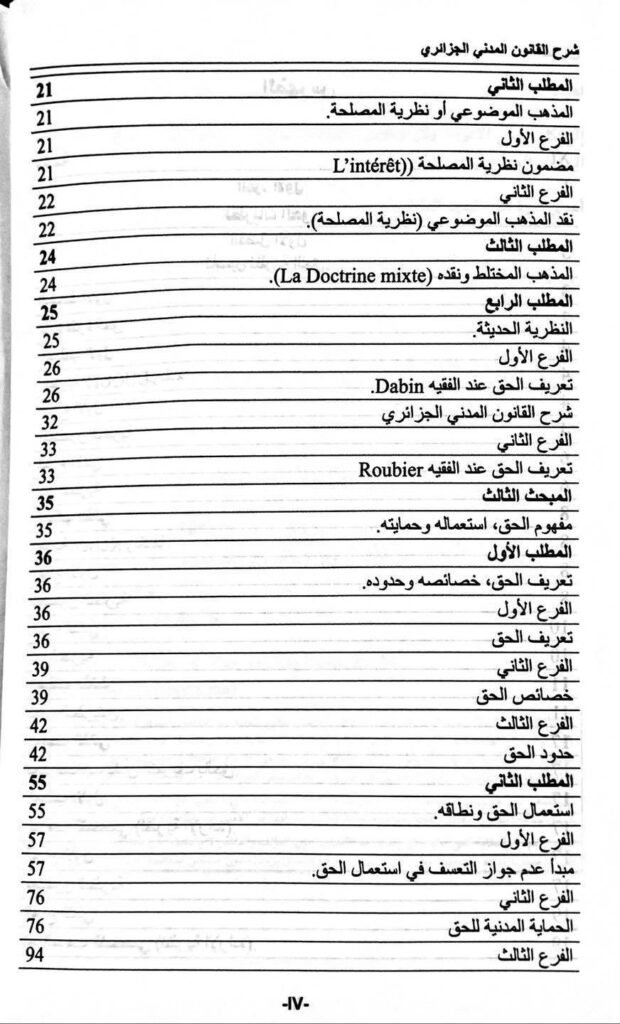 شرح القانون المدني الجزائري
المطلب الثاني 21
المذهب الموضوعي أو نظرية المصلحة. 21
الفرع الأول 21
مضمون نظرية المصلحة ((L'intérêt 21
الفرع الثاني 22
نقد المذهب الموضوعي (نظرية المصلحة). 22
المطلب الثالث 24
المذهب المختلط ونقده (La Doctrine mixte). 24
المطلب الرابع 25
النظرية الحديثة. 25
الفرع الأول 26
تعريف الحق عند الفقيه Dabin. 26
شرح القانون المدني الجزائري 32
الفرع الثاني 33
تعريف الحق عند الفقيه Roubier 33
المبحث الثالث 35
مفهوم الحق، استعماله وحمايته. 35
المطلب الأول 36
تعريف الحق، خصائصه وحدوده. 36
الفرع الأول 36
تعريف الحق 36
الفرع الثاني 39
خصائص الحق 39
الفرع الثالث 42
حدود الحق 42
المطلب الثاني 55
استعمال الحق ونطاقه. 55
الفرع الأول 57
مبدأ عدم جواز التعسف في استعمال الحق. 57
الفرع الثاني 76
الحماية المدنية للحق 76
الفرع الثالث 94
-IV-